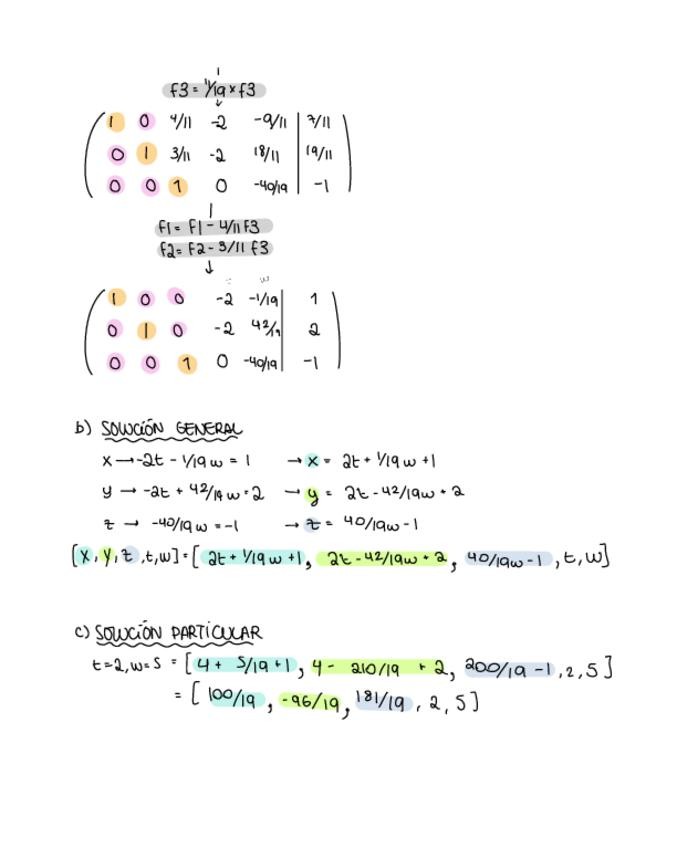 f3 = 1/19 x f3
1 0 4/11 -2 -9/11 | 7/11
0 1 3/11 -2 18/11 | 19/11
0 0 1 0 -40/19 | -1
f1 = f1 - 4/11 f3
f2 = f2 - 3/11 f3
1 0 0 -2 -1/19 | 1
0 1 0 -2 42/19 | 2
0 0 1 0 -40/19 | -1
b) SOLUCIÓN GENERAL
x → -2t - 1/19 w = 1 → x = 2t + 1/19 w + 1
y → -2t + 42/19 w = 2 → y = 2t - 42/19w + 2
z → -40/19 w = -1 → z = 40/19w - 1
[x, y, z, t, w] = [2t + 1/19 w + 1, 2t - 42/19w + 2, 40/19w - 1, t, w]
c) SOLUCIÓN PARTICULAR
t = 2, w = 5 = [4 + 5/19 + 1, 4 - 210/19 + 2, 200/19 - 1, 2, 5]
= [100/19, -96/19, 181/19, 2, 5]